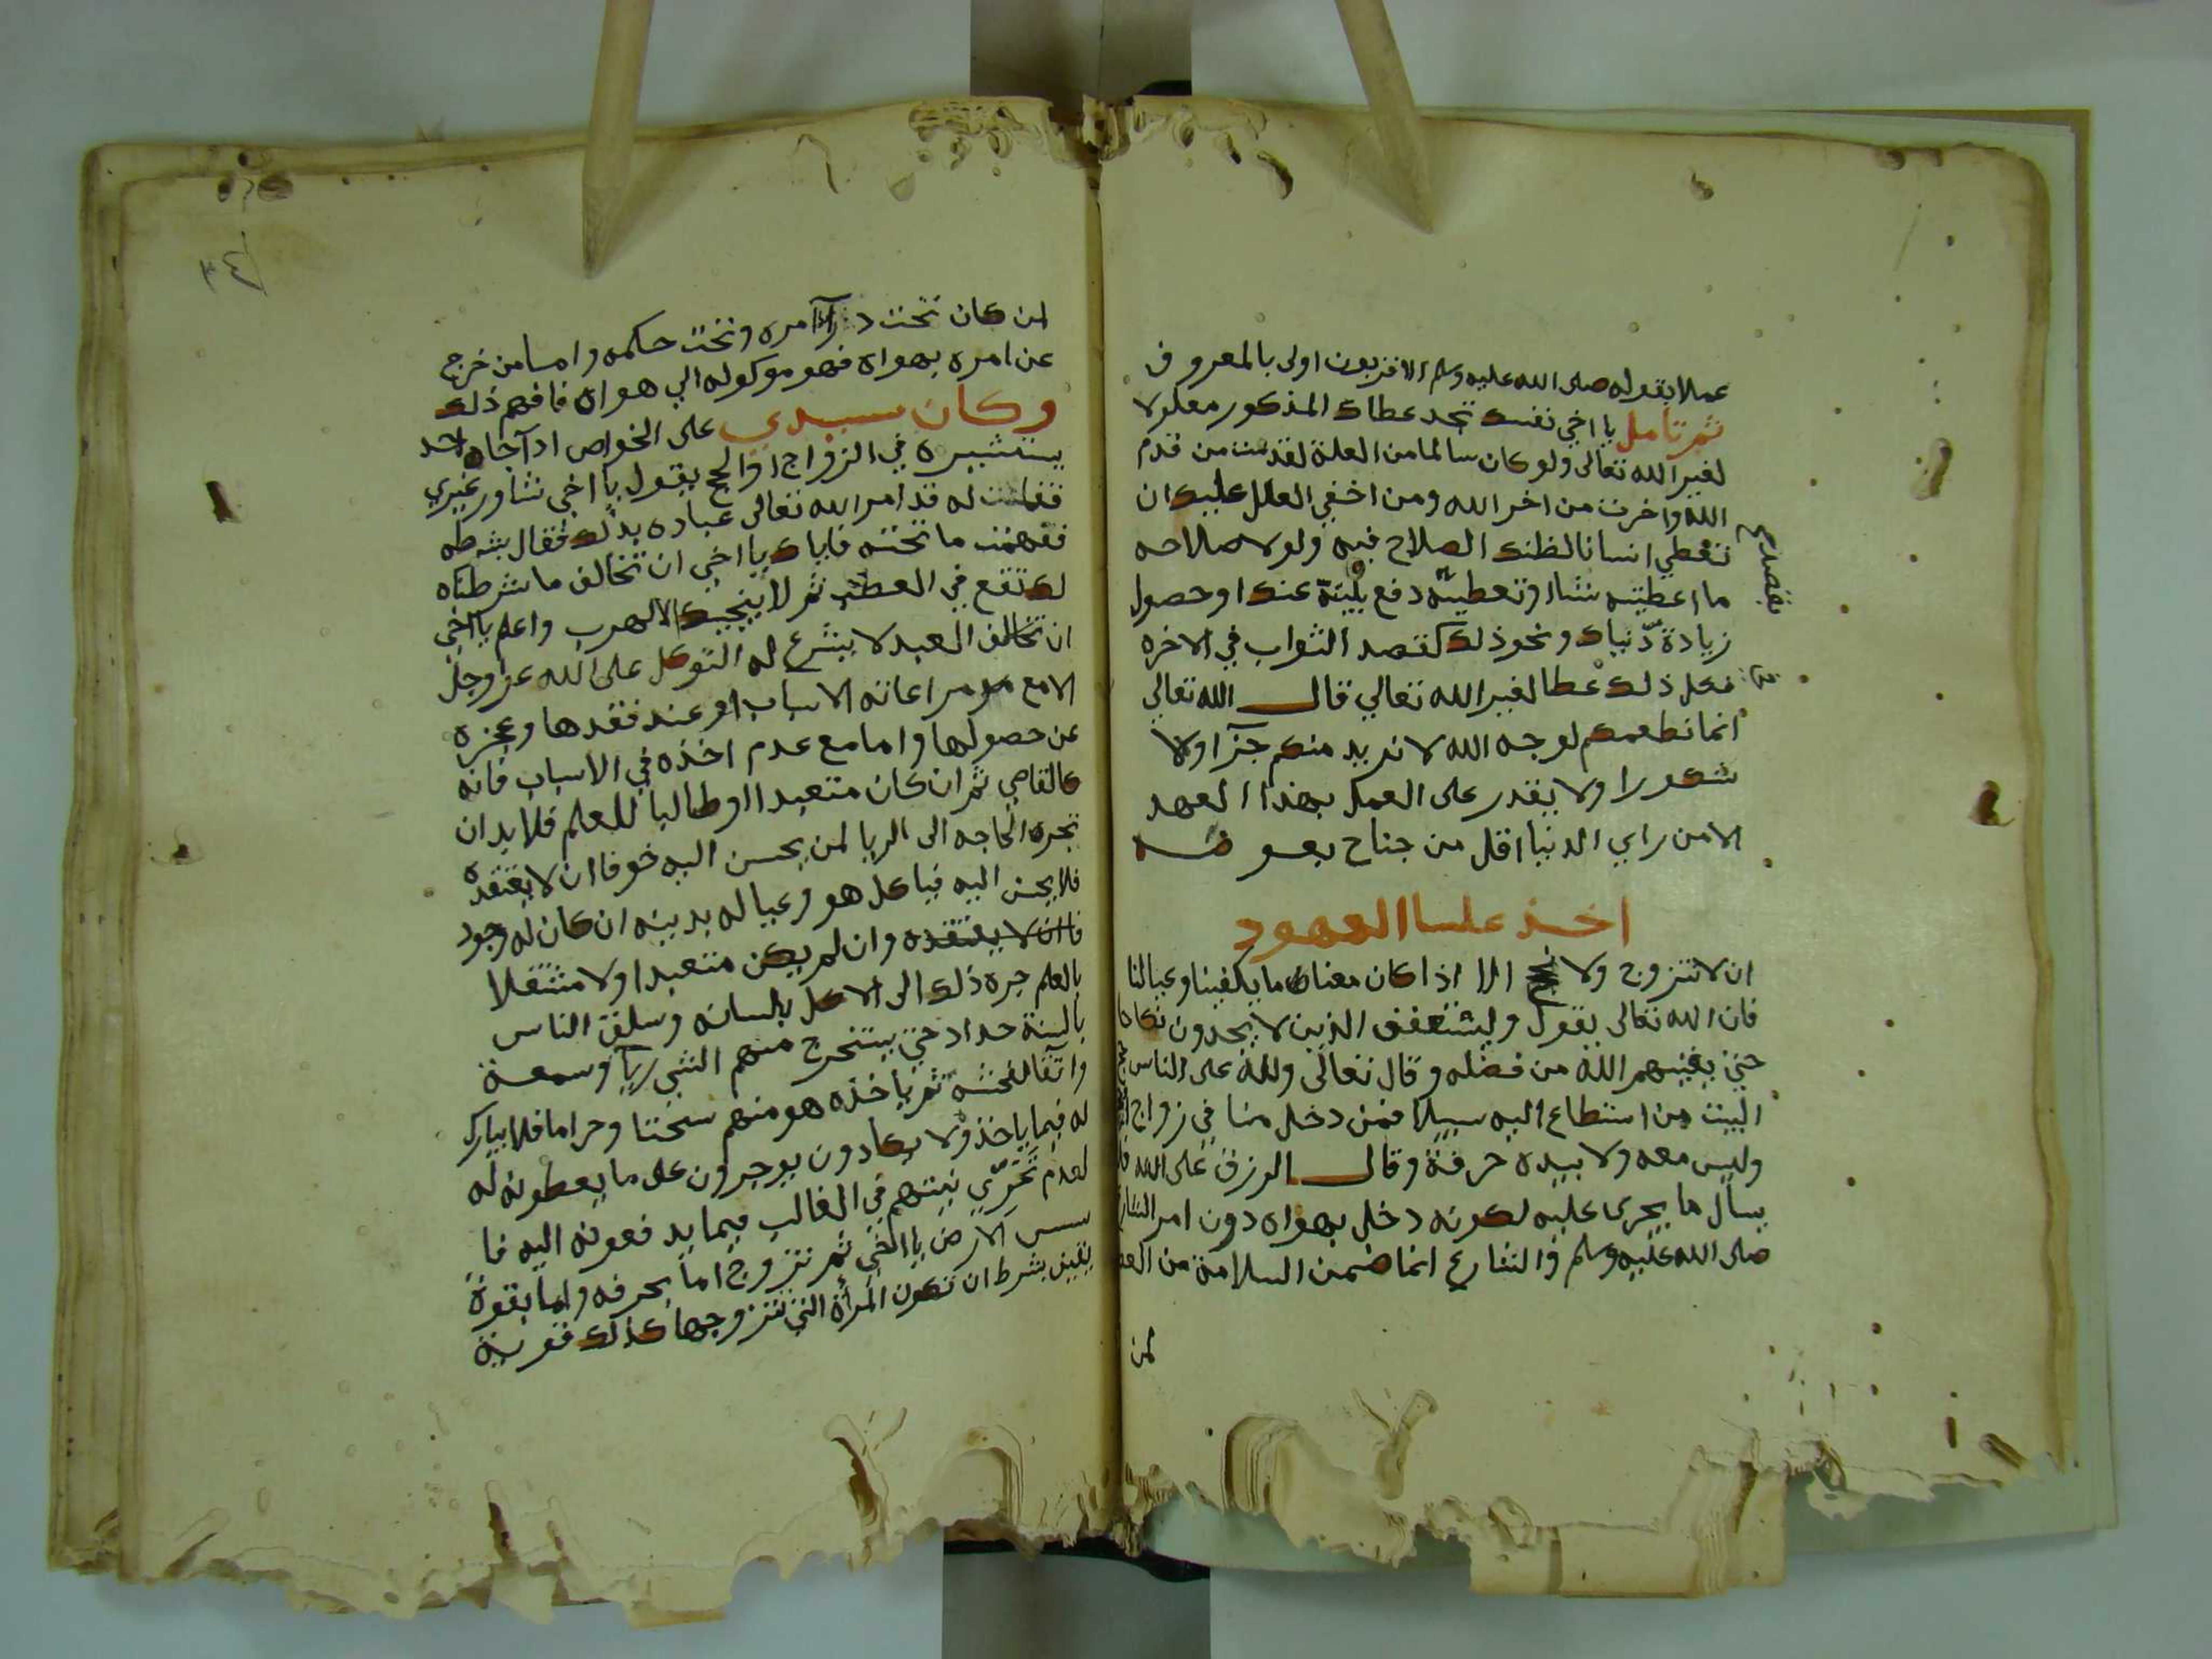 عملا بقوله صلى الله عليه وسلم الاقربون اولى بالمعروف
ثم تامل يا اخي نفسك تجد عطاك المذكور معلولا
لغير الله تعالى ولو كان سالما من العلة لقدمت من قدم
الله واخرت من اخر الله ومن اخفي العلل عليك ان
تعطي انسانا لظنك الصلاح فيه ولولا صلاحه
ما اعطيته شئا او تعطيه دفع بلية عنك او حصول
زيادة دنياك ونحو ذلك كقصد الثواب في الاخره
فكل ذلك عطا لغير الله تعالي قال الله تعالي
انما نطعمكم لوجه الله لا نريد منكم جزآ ولا
شكورا ولا يقدر على العمل بهذا العهد
الا من راي الدنيا اقل من جناح بعوضه
اخذ علينا العهود
ان لا نتزوج ولا نحج الا اذا كان معنا ما يكفينا وعيالنا
فان الله تعالى يقول وليستعفف الذين لا يجدون نكاحا
حتي يغنيهم الله من فضله وقال تعالى ولله على الناس حج
البيت من استطاع اليه سبيلا فمن دخل منا في زواج او
وليس معه ولا بيده حرفة وقال الرزق على الله فلا
يسأل ما يجرى عليه لكونه دخل بهواه دون امر الشارع
صلى الله عليه وسلم والشارع انما ضمن السلامة من
لمن
لمن كان تحت امره وتحت حكمه واما من خرج
عن امره بهواه فهو موكول الي هواه فافهم ذلك
وكان سيدي على الخواص اذا جاه احد
يستشيره في الزواج او الحج يقول يا اخي شاور غيري
فقلت له قد امر الله تعالى عباده بذلك فقال بشرطه
ففهمت ما تحته فاياك يا اخي ان تخالف ما شرطناه
لك تقع في العطب ثم لا ينجيك الا الهرب واعلم يا اخي
ان العبد لا يشرع له التوكل على الله عز وجل
الا مع مراعاته الاسباب او عند فقدها وعجزه
عن حصولها واما مع عدم اخذه في الاسباب فانه
كالقاصي ثم ان كان متعبدا او طالبا للعلم فلا بد ان
تجره الحاجه الى الريا لمن يحسن اليه خوفا ان لا يعتقده
فلا يحسن اليه فياكل هو وعياله بدينه ان كان له وجود
فاان لا يعتقده وان لم يكن متعبدا ولا مشتغلا
بالعلم جره ذلك الى الاكل بلسانه وسلق الناس
بالسنة حداد حتي يستخرج منهم الشي ريآ وسمعة
واتقا لفحشه ثم ياخذه هو منهم سحتا وحراما فلا يبارك
له فيما ياخذ ولا يكادون يوجرون على ما يعطونه له
لعدم تحرّي نيتهم في الغالب فيما يدفعونه اليه فا
سس الارض يا اخي ثم تتزوج اما بحرفه واما بقوة
يقين بشرط ان تكون المرأة التي تتزوجها كذلك قوية